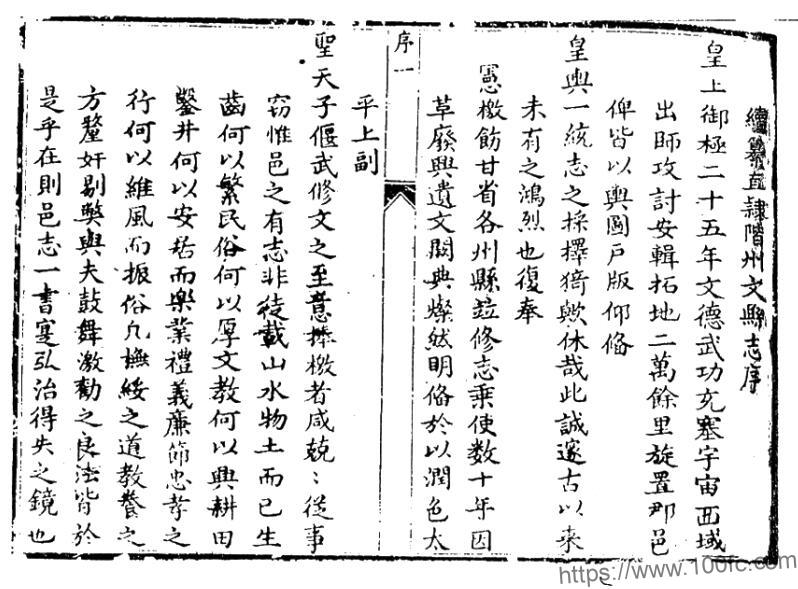 續纂直隸階州文縣志序
皇上御極二十五年文德武功充塞宇宙西域
出師攻討安輯拓地二萬餘里旋置郡邑
俾皆以輿圖戶版仰俻
皇輿一統志之採擇猗歟休哉此誠邃古以來
未有之鴻烈也復奉
憲檄飭甘省各州縣竝修志乗使数十年因
草廢興遺文闕典燦然明俻於以潤色太
序一
平上副
聖天子偃武修文之至意捧檄者咸兢〻從事
窃惟邑之有志非徒載山水物土而已生
齒何以繁民俗何以厚文教何以興耕田
鑿井何以安居而樂業禮義廉節忠孝之
行何以維風而振俗凢撫綏之道教養之
方釐奸剔獘與夫鼓舞激勸之良法皆於
是乎在則邑志一書寔弘治得失之鏡也
https://www.100fc.com